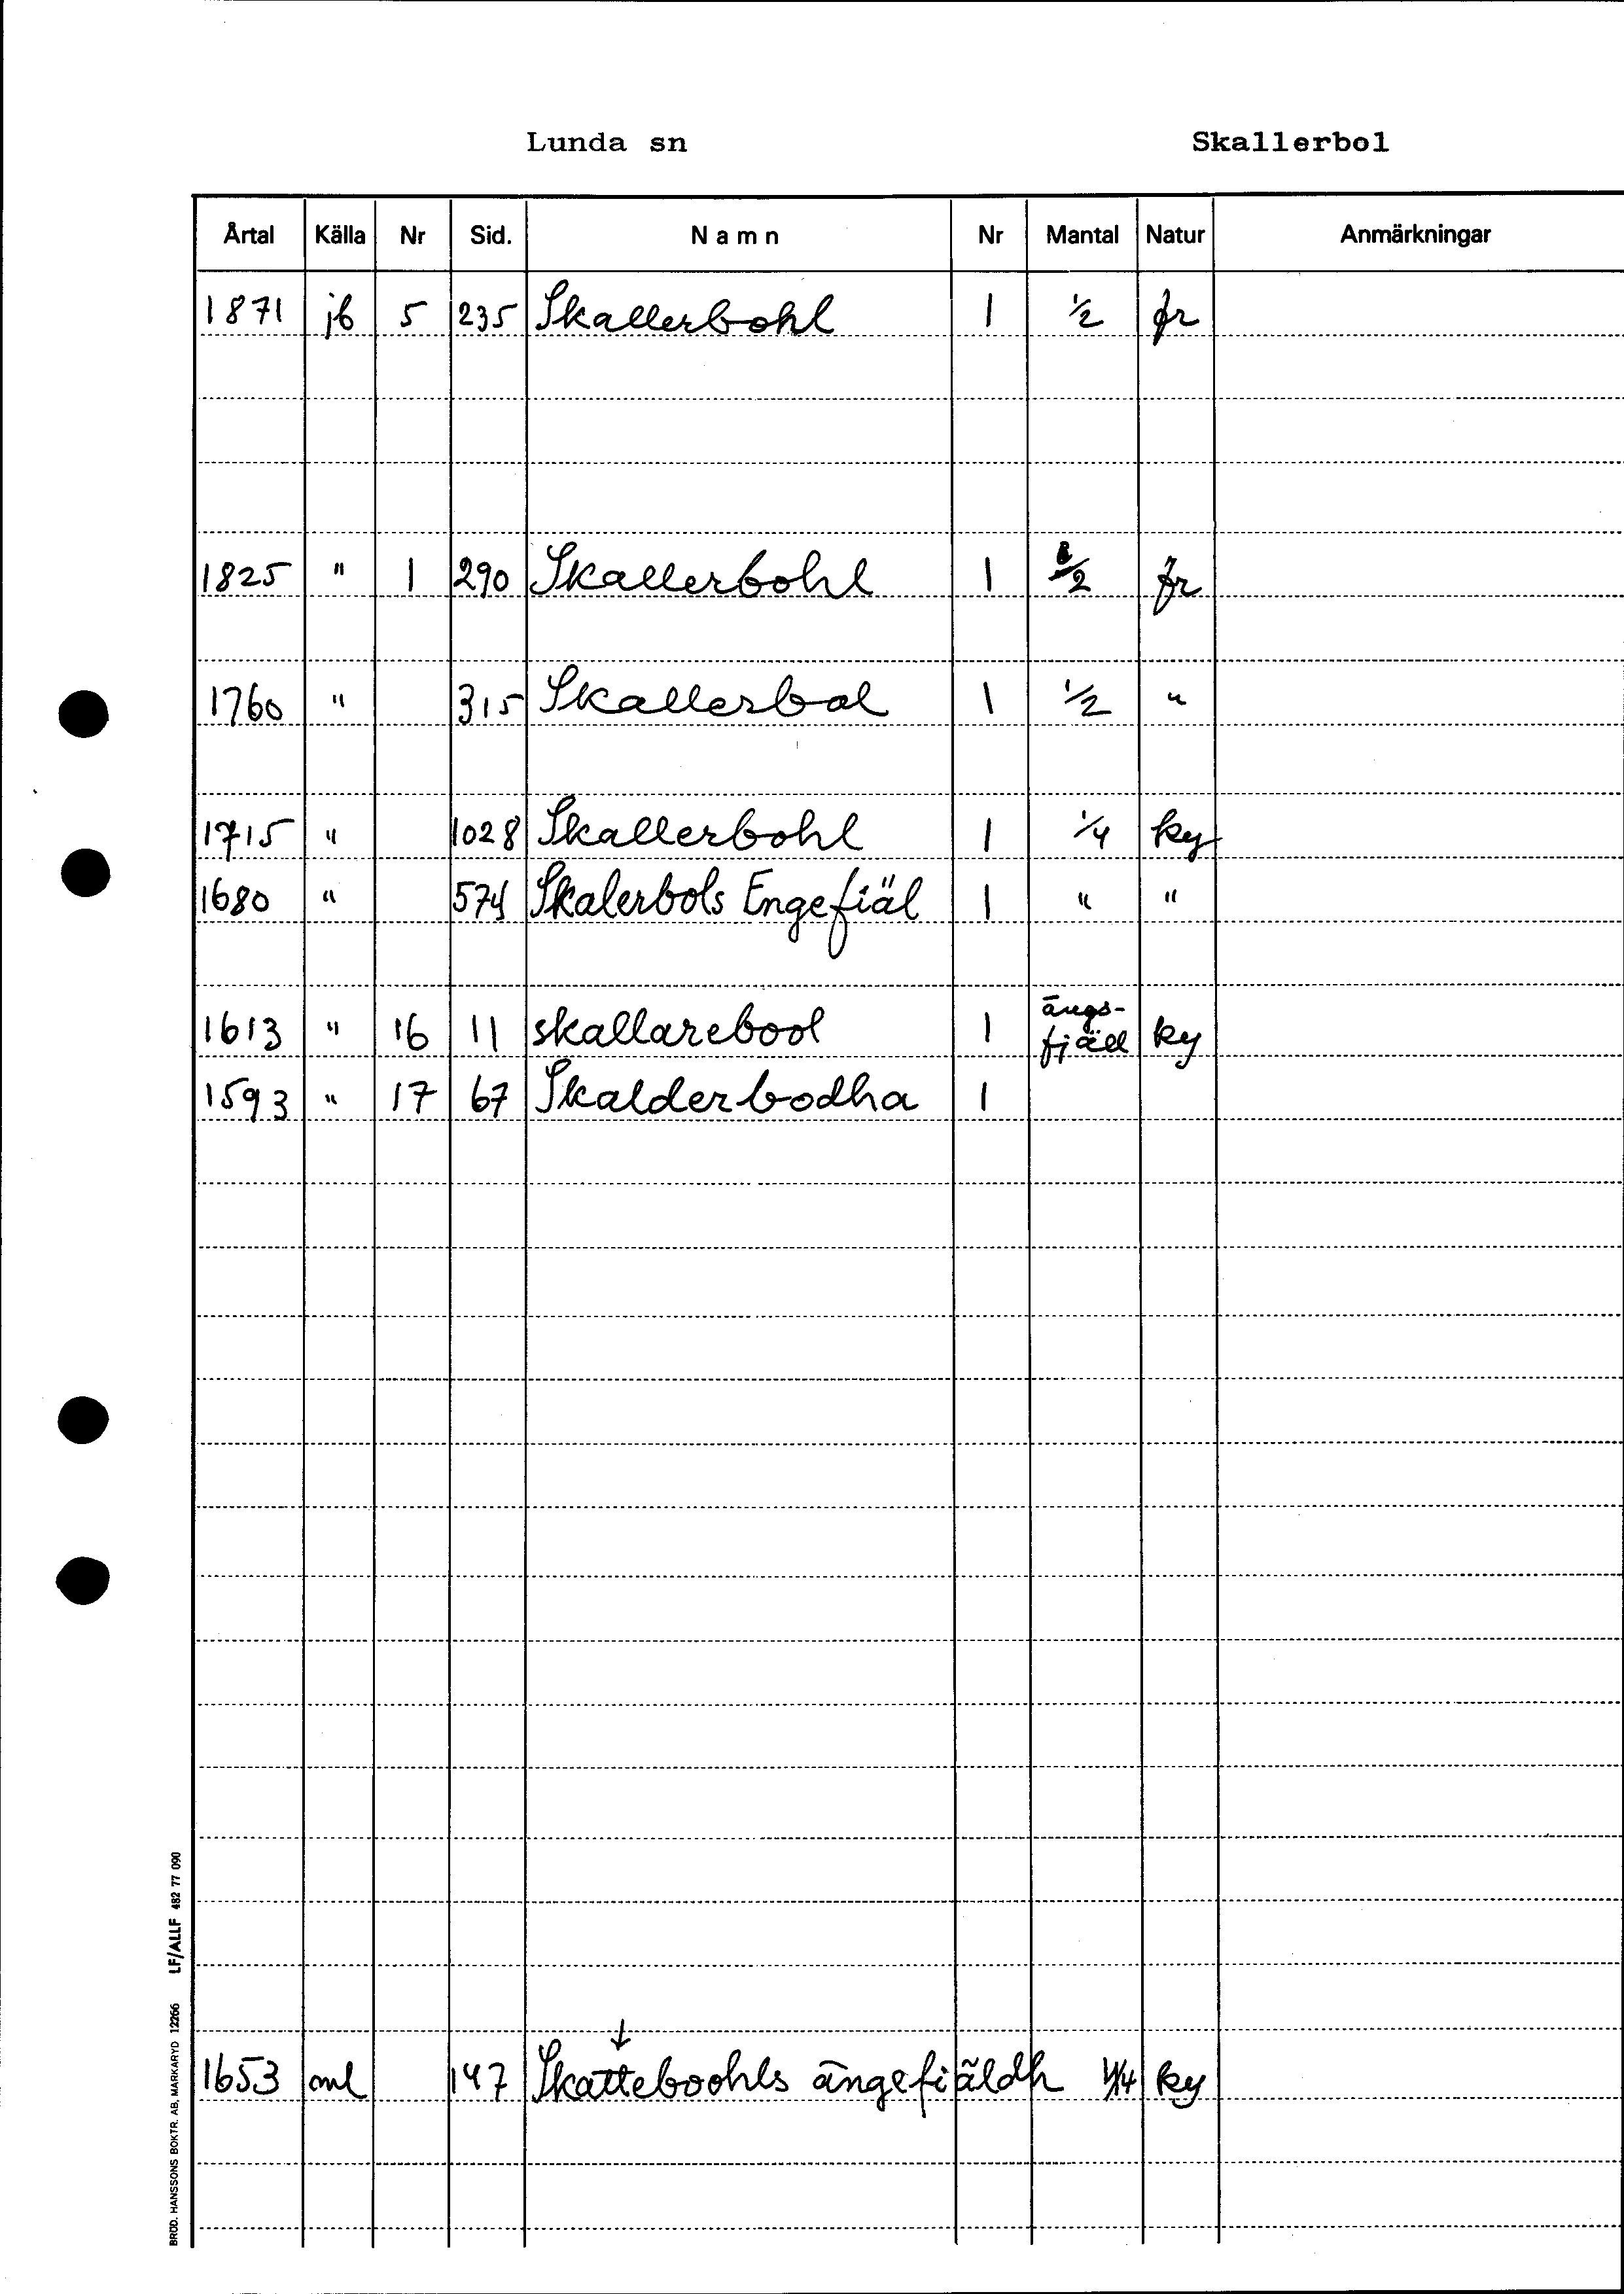 Lunda sn Skallerbol
Årtal Källa Nr Sid. Namn Nr Mantal Natur Anmärkningar
1871 jb 5 235 Skallerbohl 1 1/2 fr
1825 " 1 290 Skallerbohl 1 1/2 fr
1760 " 315 Skallerbol 1 1/2 "
1715 " 1028 Skallerbohl 1 1/4 ky
1680 " 574 Skalerbols Engefiäl 1 " "
1613 " 16 11 skallarebool 1 ängs-
fjäll ky
1593 " 17 67 Skalderbodha 1
↓
1653 ml 147 Skatteboohls ängefiäldh 1/4 ky
BRÖD. HANSSONS BOKTR. AB, MARKARYD 12266 LF/ALLF 482 77 090